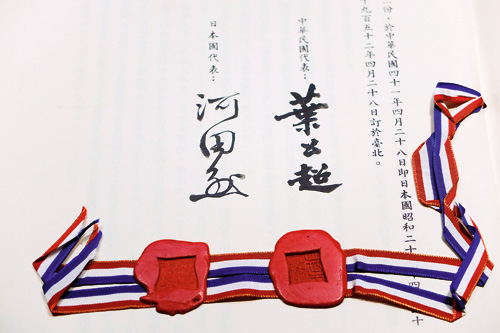 一份,於中華民國四十一年四月二十八日即日本國昭和二十 四 十
九百五十二年四月二十八日訂於臺北。
中華民國代表：葉公超
日本國代表：河田烈